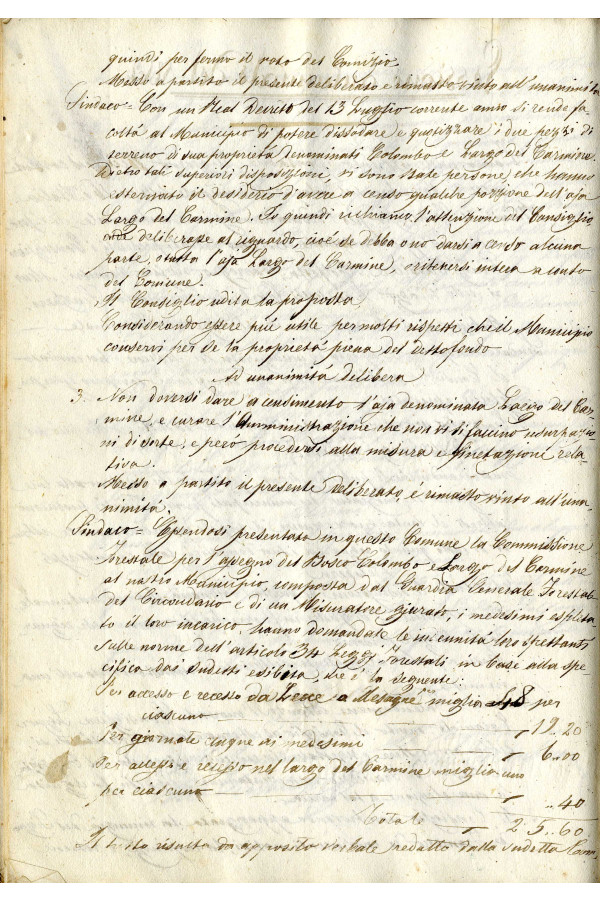 quindi per fermo il voto del Comizio.
Messo a partito il presente deliberato è rimasto vinto all'unanimità
Sindaco = Con un Real Decreto del 13 Luglio corrente anno si rende fa
coltà al Municipio di potere dissodare e quotizzare i due pezzi di
terreno di sua proprietà denominati Colombo e Largo del Carmine.
Dietro tali superiori disposizioni, vi sono state persone, che hanno
esternato il desiderio d'avere a censo qualche porzione dell'aja
Largo del Carmine. Io quindi richiamo l'attenzione del Consiglio
deliberare al riguardo, cioè se debba o no darsi a censo alcuna
parte, o tutta l'aja Largo del Carmine, o ritenersi intera a conto
del Comune.
Il Consiglio udita la proposta
Considerando essere più utile per molti rispetti che il Municipio
conservi per se la proprietà piena del detto fondo
Ad unanimità delibera
3. Non doversi dare a censimento l'aja denominata Largo del Car
mine, e curare l'Amministrazione che non vi si faccino usurpazio
ni di sorte, e però procedersi alla misura e rela
tiva.
Messo a partito il presente deliberato, è rimasto vinto all'una
nimità.
Sindaco = Essendosi presentata in questo Comune la Commissione
Forestale per l'assegno del Bosco Colombo e Largo del Carmine
al nostro Municipio, composta dal Guardia Generale Forestale
del Circondario e di un Misuratore giurato, i medesimi espleta
to il loro incarico, hanno domandate le indennità loro spettanti
sulle norme dell'articolo 34 Leggi Forestali in base alla spe
cifica dai sudetti esibita, che è la seguente:
Per accesso e recesso da Lecce a Mesagne miglia 48 per
ciascuno " 19..20
Per giornate cinque ai medesimi " 6..00
Per accesso e recesso nel largo del Carmine miglio uno
per ciascuno " ..40
Totale " 25..60
Il tutto risulta da apposito verbale redatto dalla sudetta Com